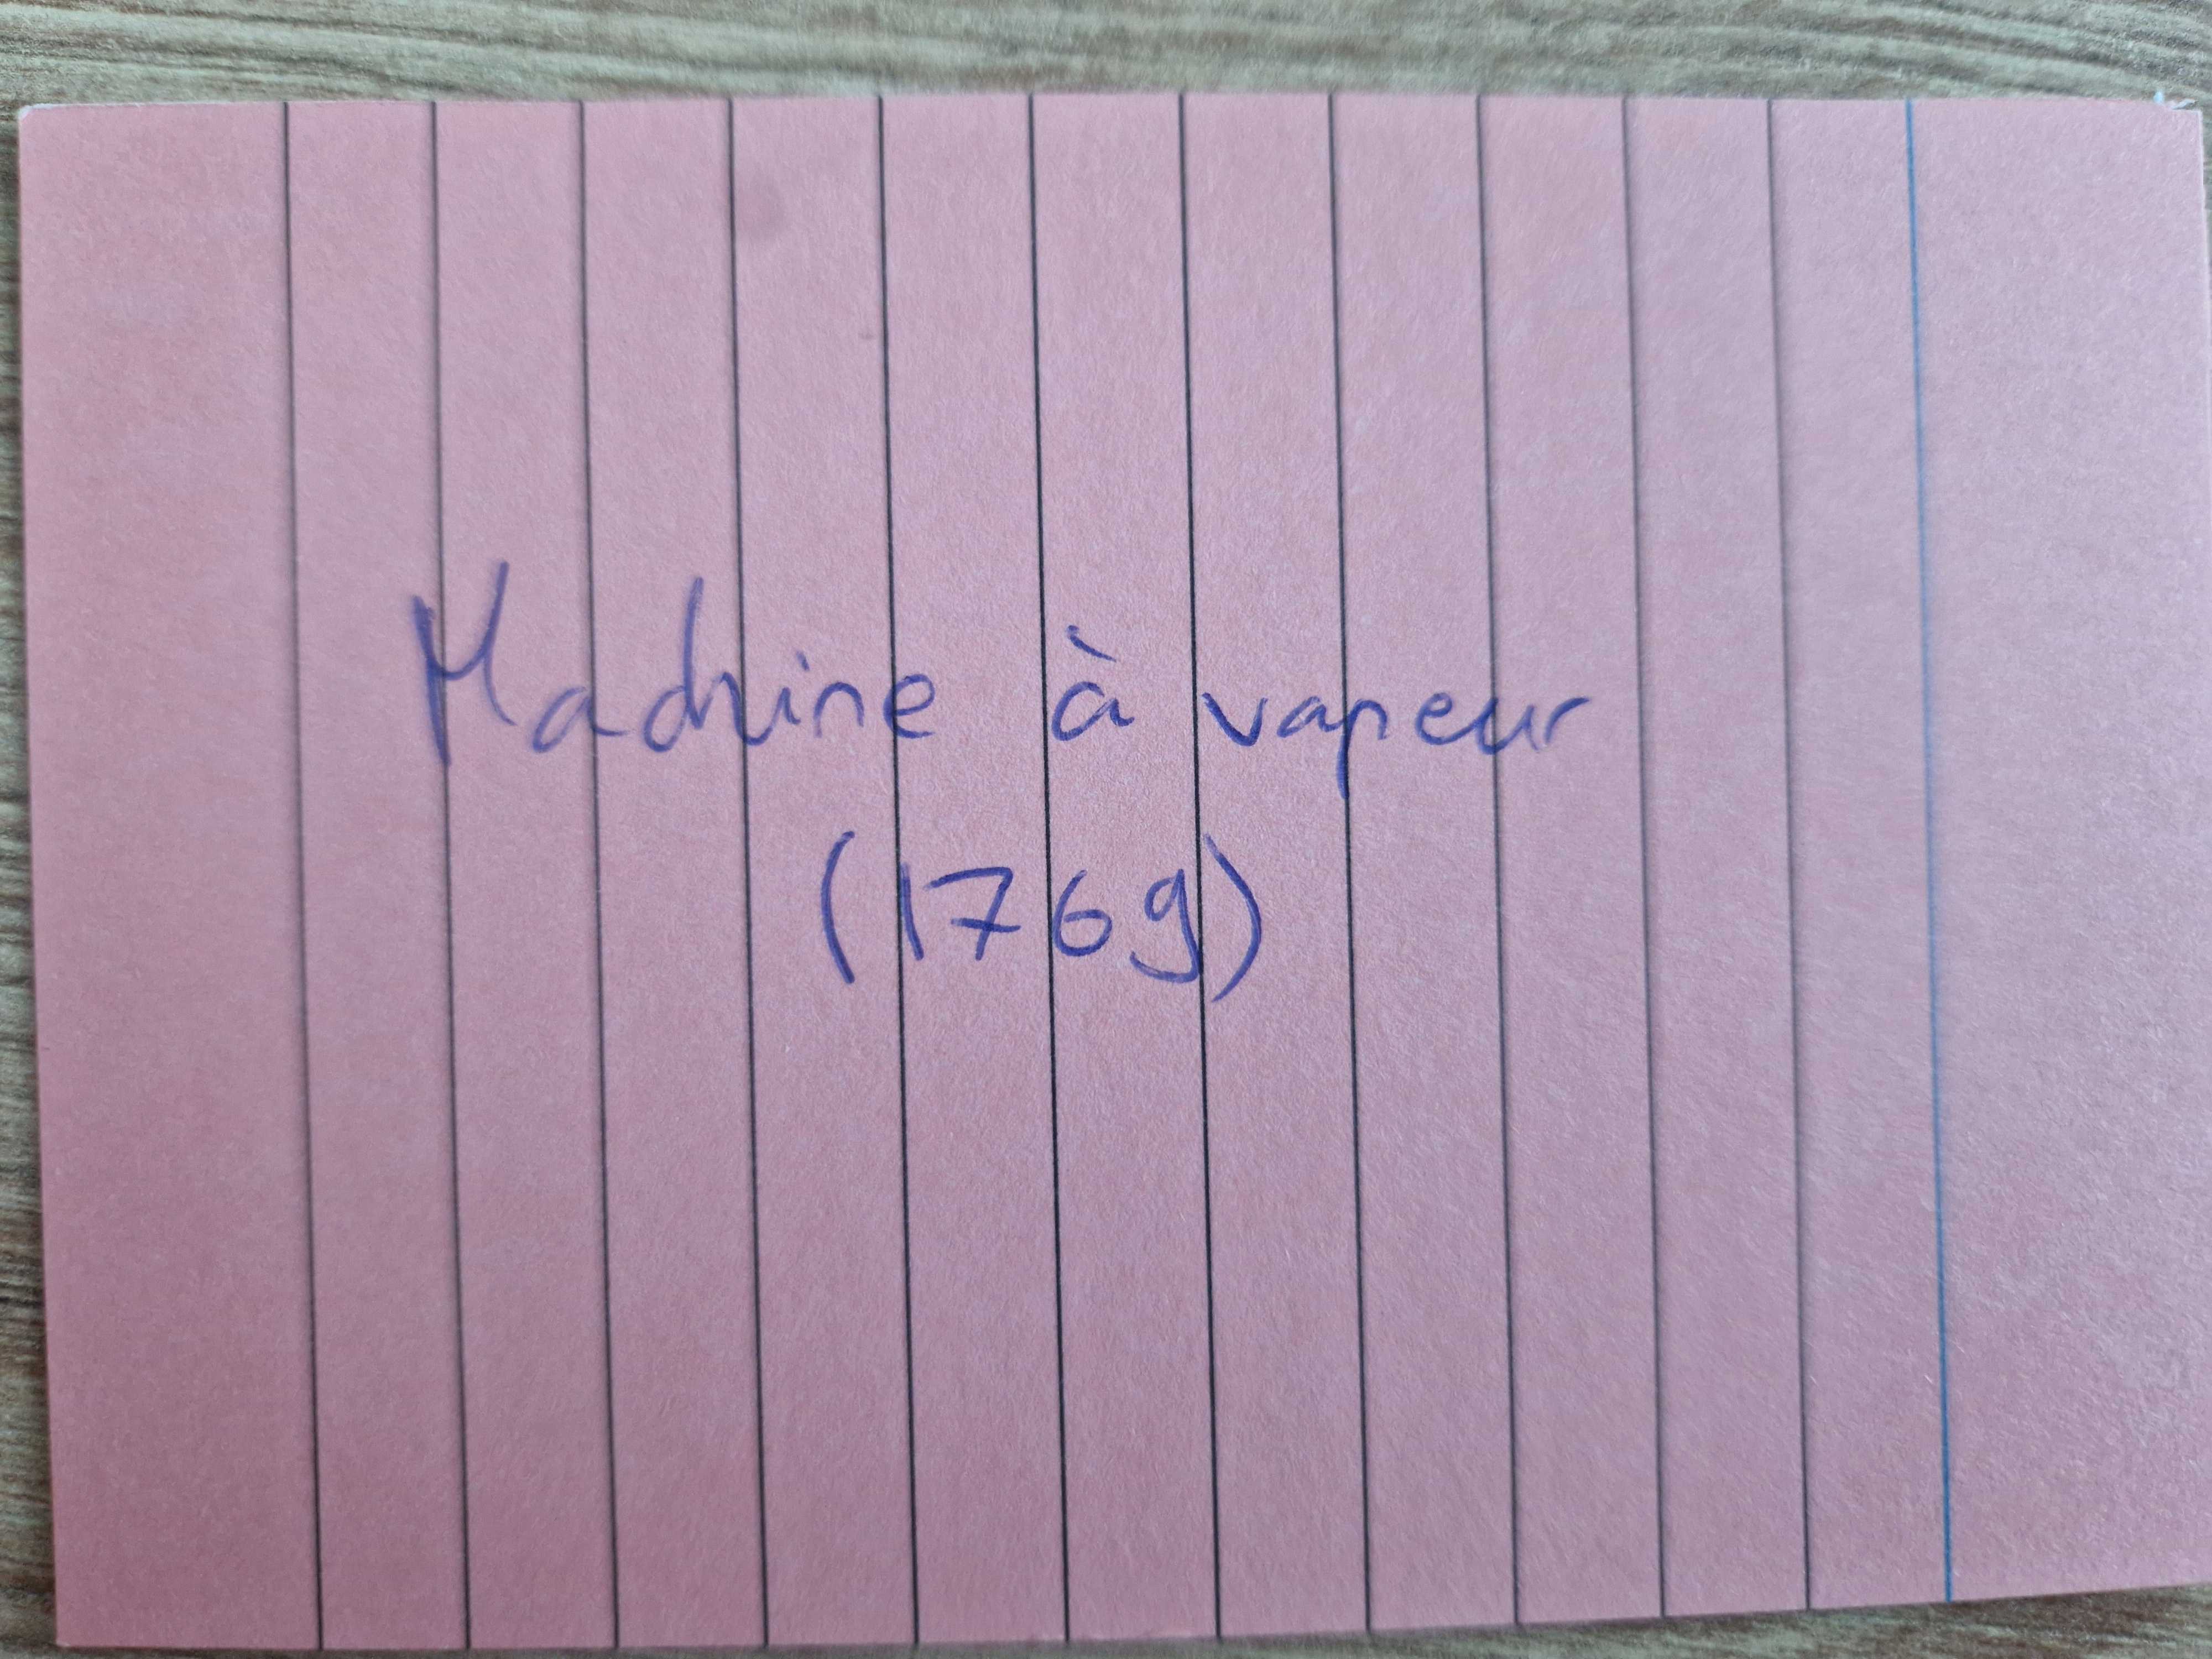 Machine à vapeur
(1769)